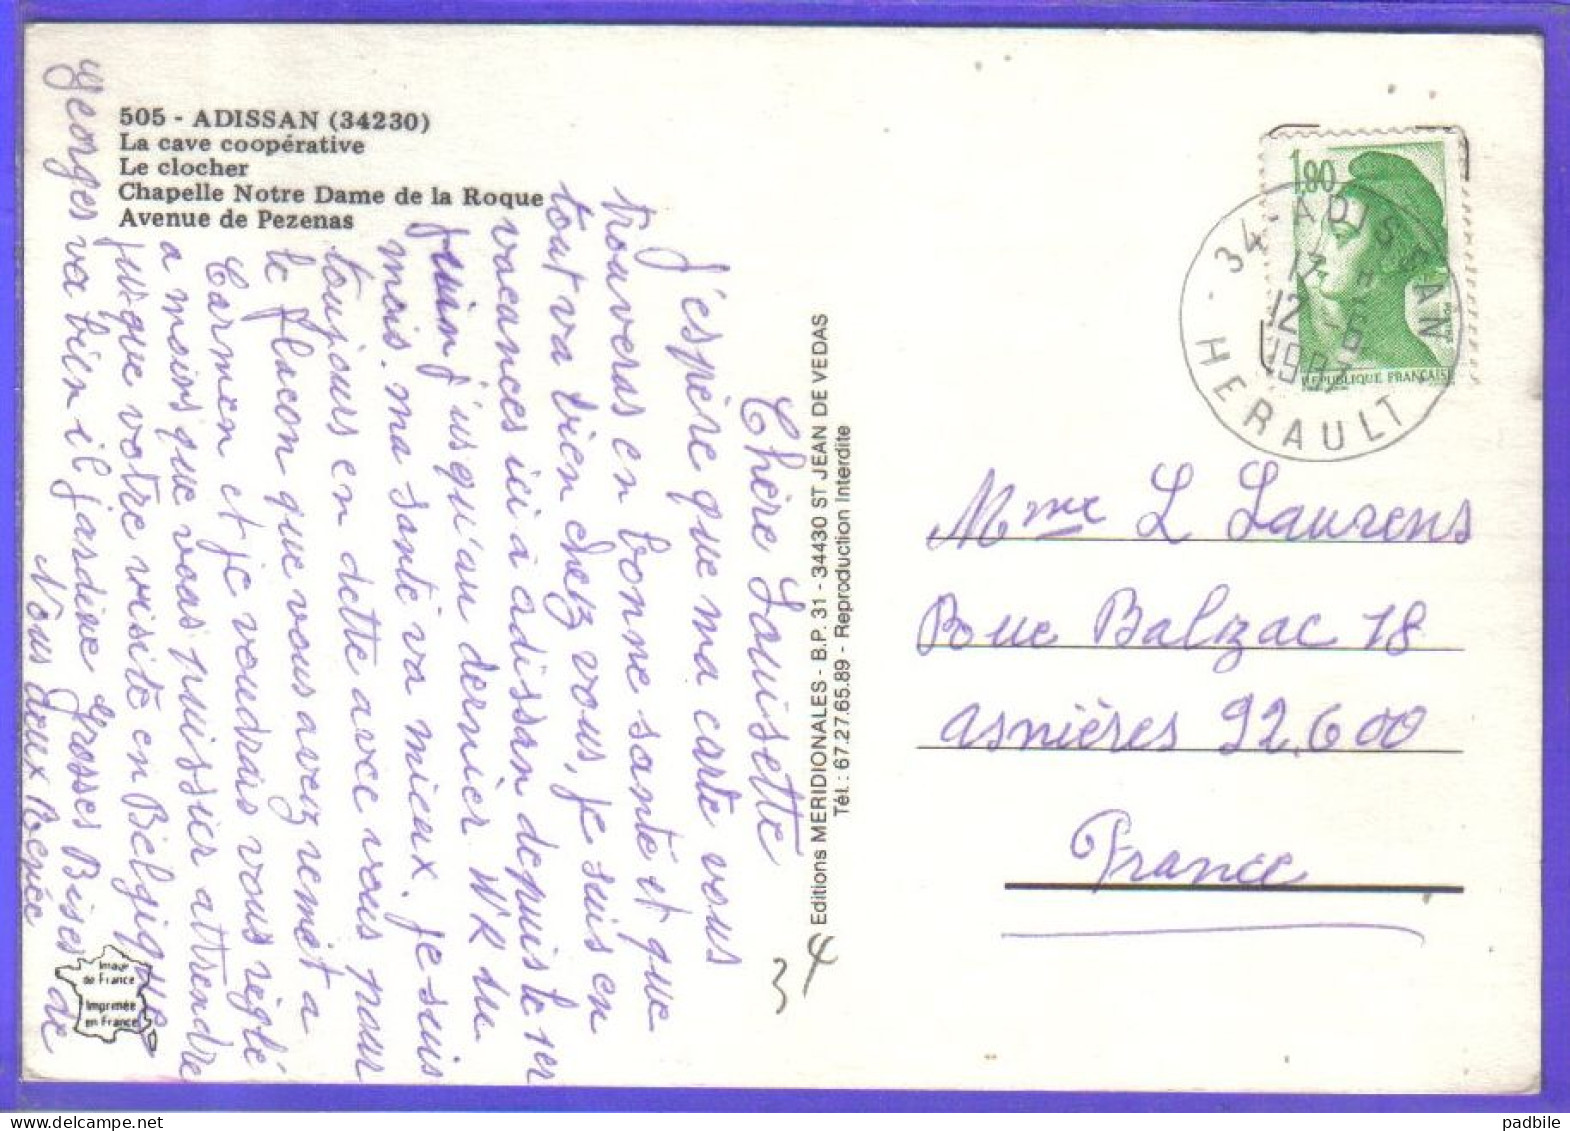 505 - ADISSAN (34230)
La cave coopérative
Le clocher
Chapelle Notre Dame de la Roque
Avenue de Pezenas
Chère Louisette
J'espère que ma carte vous
trouveras en bonne santé et que
tout va bien chez vous, je suis en
vacances ici à adissan depuis le 1er
juin jusqu'au dernier WK du
mois. ma santé va mieux. je suis
toujours en dette avec vous pour
le flacon que vous avez remit a
Carmen et je voudrais vous réglé
a moins que vous puissier attendre
jusque votre visite en Belgique
georges va bien il jardine grosses Bises de
Nous deux Renée
Editions MERIDIONALES - B.P. 31 - 34430 ST JEAN DE VEDAS
Tél. : 67.27.65.89 - Reproduction Interdite
Image
de France
Imprimée
en France
34
1,80
REPUBLIQUE FRANCAISE
34 - ADISSAN
17 H
12 -6
1987
HERAULT
Mme L Laurens
Rue Balzac 18
asnières 92.600
France
padbile